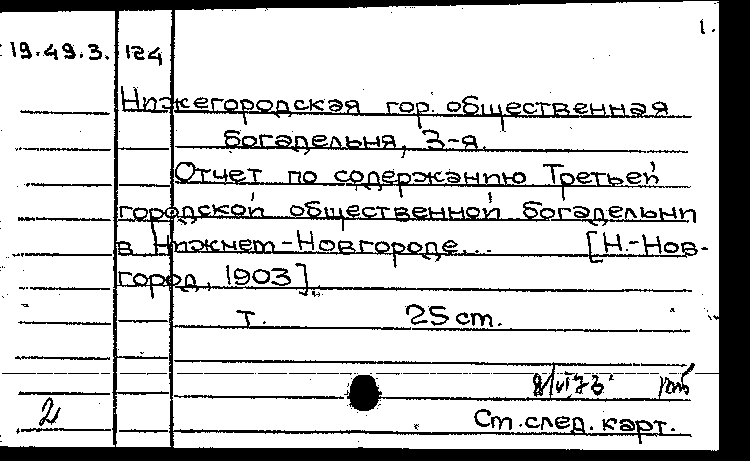 1.
19.49.3. 124
Нижегородская гор. общественная
богадельня, 3-я.
Отчет по содержанию Третьей
городской общественной богадельни
в Нижнем-Новгороде... [Н.-Нов-
город, 1903].
т. 25 см.
2
См. след. карт.